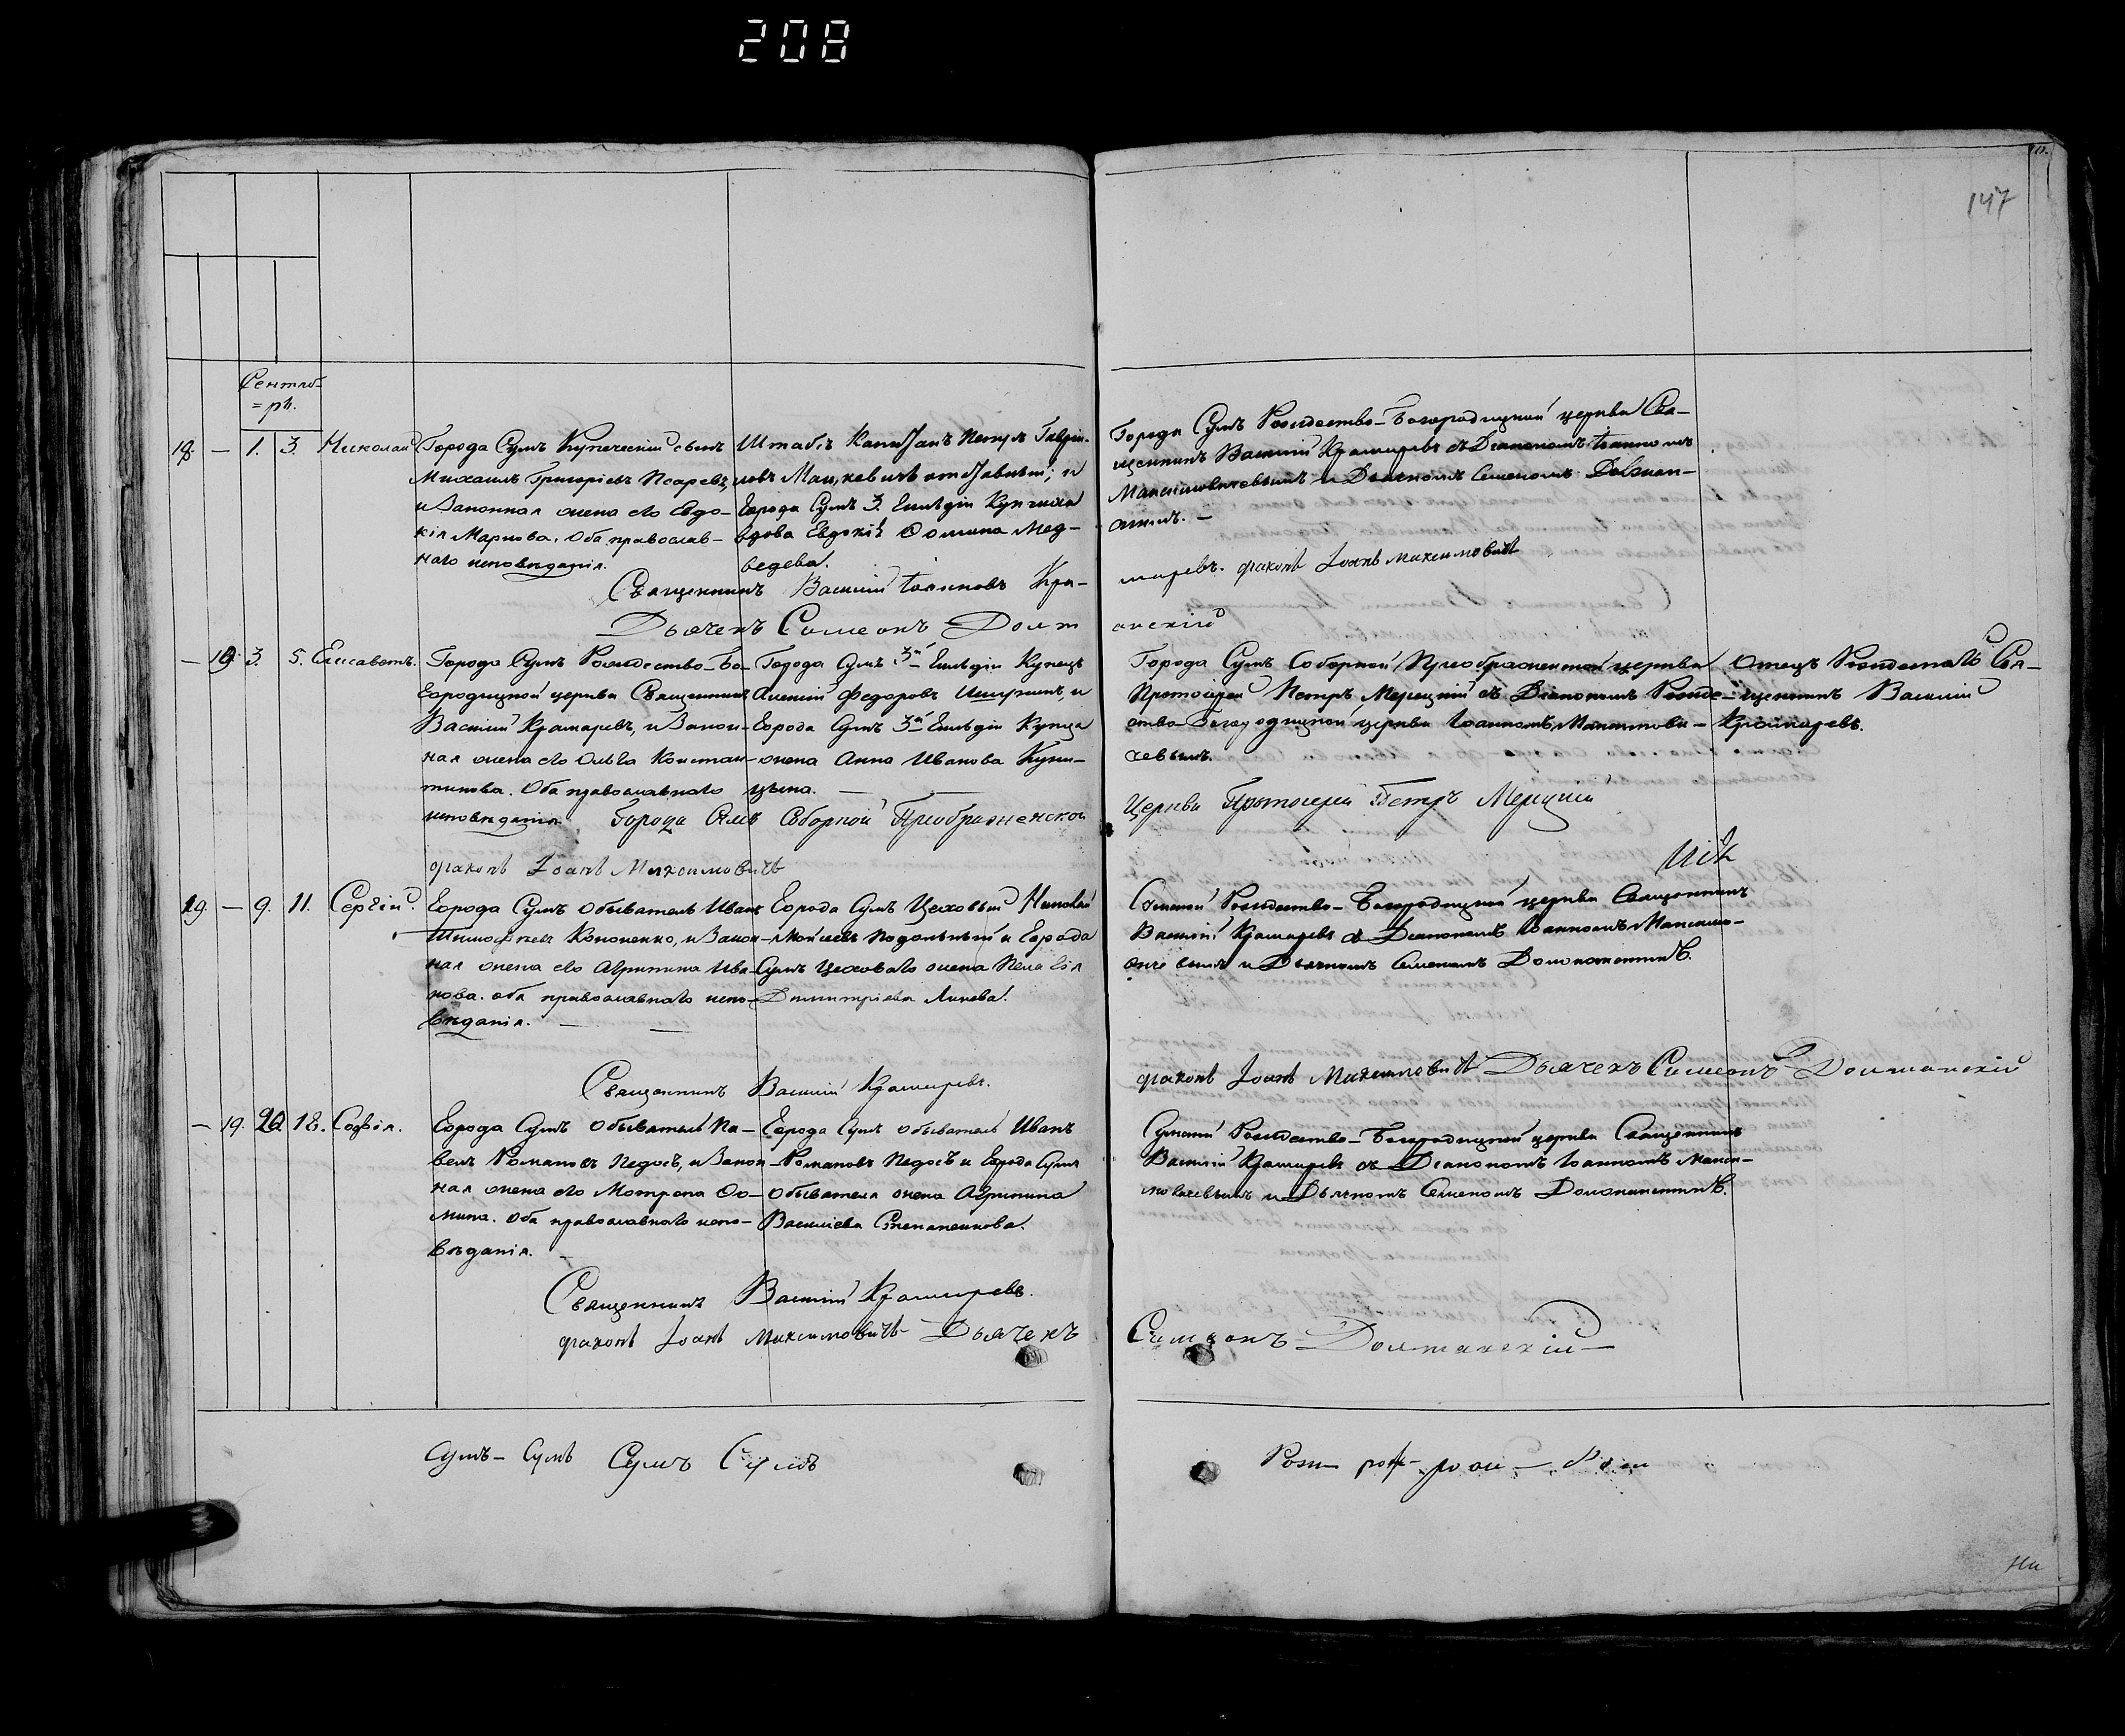 208
147
Сентяб-
=рь.
19. — 1. 3. Николай
Города Сумъ Купеческій сынъ
Михаилъ Григоріевъ Псаревъ,
и Законная жена его Евдо-
кія Маркова. Оба православ-
наго исповѣданія.
Штабсъ Капитанъ Петръ Гаврі-
ловъ отставный; и
Города Сумъ 3. Гильдіи Купчиха
вдова Евдокія Ѳомина Мед-
ведева.
Города Сумъ Рождество-Богородицкой церкви Свя-
щенникъ Василій Крамаревъ съ Діакономъ Іоанномъ
Максимовичевымъ и Дьячкомъ Семеномъ
Священникъ Василій Іоанновъ Кра-
маревъ. діаконъ Іоанъ Максимовичъ
Дьячекъ Симеонъ Долж
анскій
— 19. 3. 5. Елисаветъ.
Города Сумъ Рождество-Бо-
городицкой церкви Священникъ
Василій Крамаревъ, и Закон-
ная жена его Ольга Констан-
тинова. Оба православнаго
исповѣданія
Города Сумъ 3й Гильдіи Купецъ
Алексій Федоровъ и
Города Сумъ 3й Гильдіи Купца
жена Анна Иванова Купи-
цына. —
Города Сумъ Соборной Преображенской церкви
Протоіерей Петръ Мерецкій съ Діакономъ Рожде-
ство-Богородицкой церкви Іоанномъ Максимови-
чевымъ.
Отецъ Рожденнаго Свя-
щенникъ Василій
Крамаревъ.
Города Сумъ Соборной Преображенской
Церкви Протоіерей Петръ Мерецкій
діаконъ Іоанъ Максимовичъ
19. — 9. 11. Сергій.
Города Сумъ Обыватель Иванъ
Тимофѣевъ Кононенко, и Закон-
ная жена его Агрипина Ива-
нова. оба православнаго испо-
вѣданія. —
Города Сумъ Цеховый Николай
Моисеевъ Подольный и Города
Сумъ Цеховаго жена Пелагія
Димитріева Линева.
Сумской Рождество-Богородицкой церкви Священникъ
Василій Крамаревъ съ Діакономъ Іоанномъ Максимо-
вичевымъ и Дьячкомъ Семеномъ
Священникъ Василій Крамаревъ.
діаконъ Іоанъ Максимовичъ Дьячекъ Симеонъ Должанскій
— 19. 18. Софія.
Города Сумъ Обыватель Па-
велъ Романовъ Педосъ, и Закон-
ная жена его Мотрона Ѳо-
мина. Оба православнаго испо-
вѣданія. —
Города Сумъ обыватель Иванъ
Романовъ Педосъ и Города Сумъ
Обывателя жена Агрипина
Василіева Степаненкова.
Сумской Рождество-Богородицкой церкви Священникъ
Василій Крамаревъ съ Діакономъ Іоанномъ Макси-
мовичевымъ и Дьячкомъ Семеномъ
Священникъ Василій Крамаревъ.
діаконъ Іоанъ Максимовичъ Дьячекъ
Симеонъ Должанскій
Сумъ — Сумъ Сумъ Сумъ
Рож —
Ни